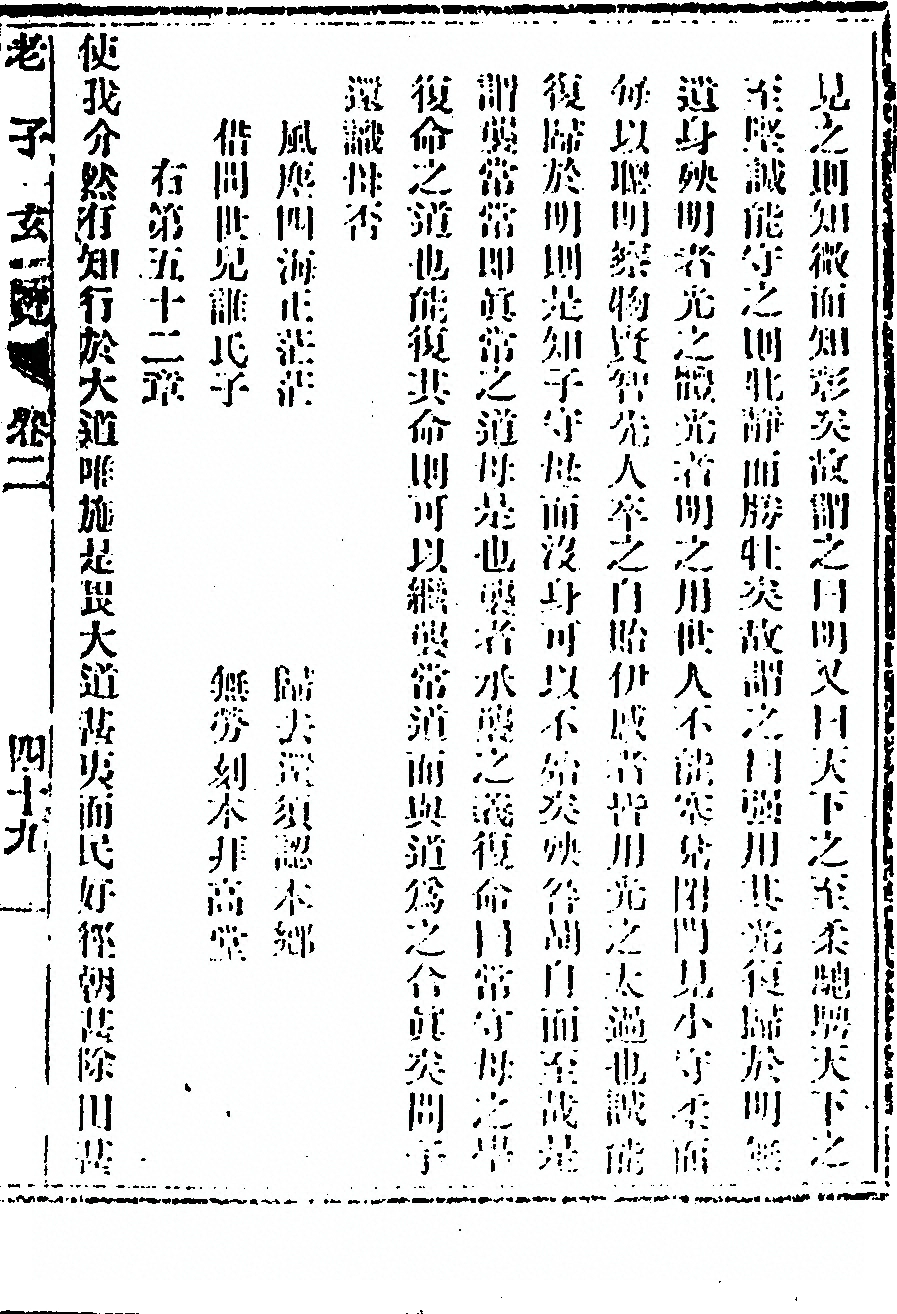 見之則知微而知彰矣故謂之曰明又曰天下之至柔馳騁天下之
至堅誠能守之則牝靜而勝牡矣故謂之曰强用其光復歸於明無
遺身殃明者光之體光者明之用世人不能塞兌閉門見小守柔而
每以聰明察物賢智先人卒之自貽伊戚者皆用光之太過也誠能
復歸於明則是知子守母而沒身可以不殆矣殃咎胡自而至哉是
謂襲常常即眞常之道母是也襲者承襲之義復命曰常守母之學
復命之道也能復其命則可以繼襲常道而與道爲之合眞矣問子
還識母否
風塵四海正茫茫 歸去還須認本鄉
借問世兒誰氏子 無勞刻木非高堂
右第五十二章
使我介然有知行於大道唯施是畏大道甚夷而民好徑朝甚除田甚
老子玄覽 卷二 四十九